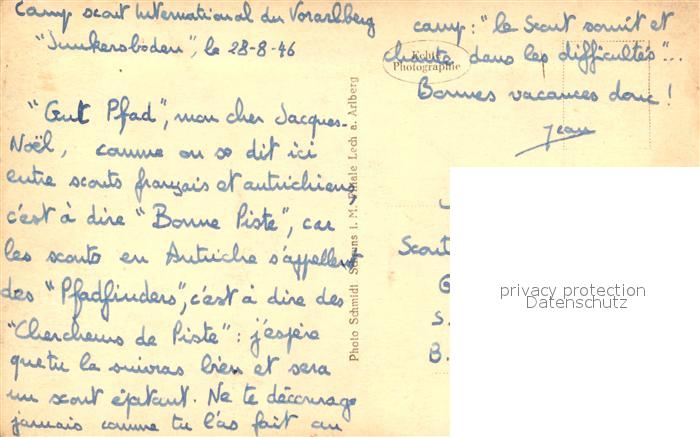 Camp scout International du Vorarlberg
"Junkersboden", le 28-8-46
"Gut Pfad", mon cher Jacques-
Noël, comme on se dit ici
entre scouts français et autrichiens,
c'est à dire "Bonne Piste", car
les scouts en Autriche s'appellent
des "Pfadfinders", c'est à dire des
"Chercheurs de Piste" : j'espère
que tu la suivras bien et sera
un scout épatant. Ne te décourage
jamais comme tu l'as fait au
camp : "le Scout sourit et
chante dans les difficultés"...
Bonnes vacances donc !
Jean
Echte
Photographie
Photo Schmidt Schruns i. M. Filiale Lech a. Arlberg
Scout
G
S.
B.
privacy protection
Datenschutz